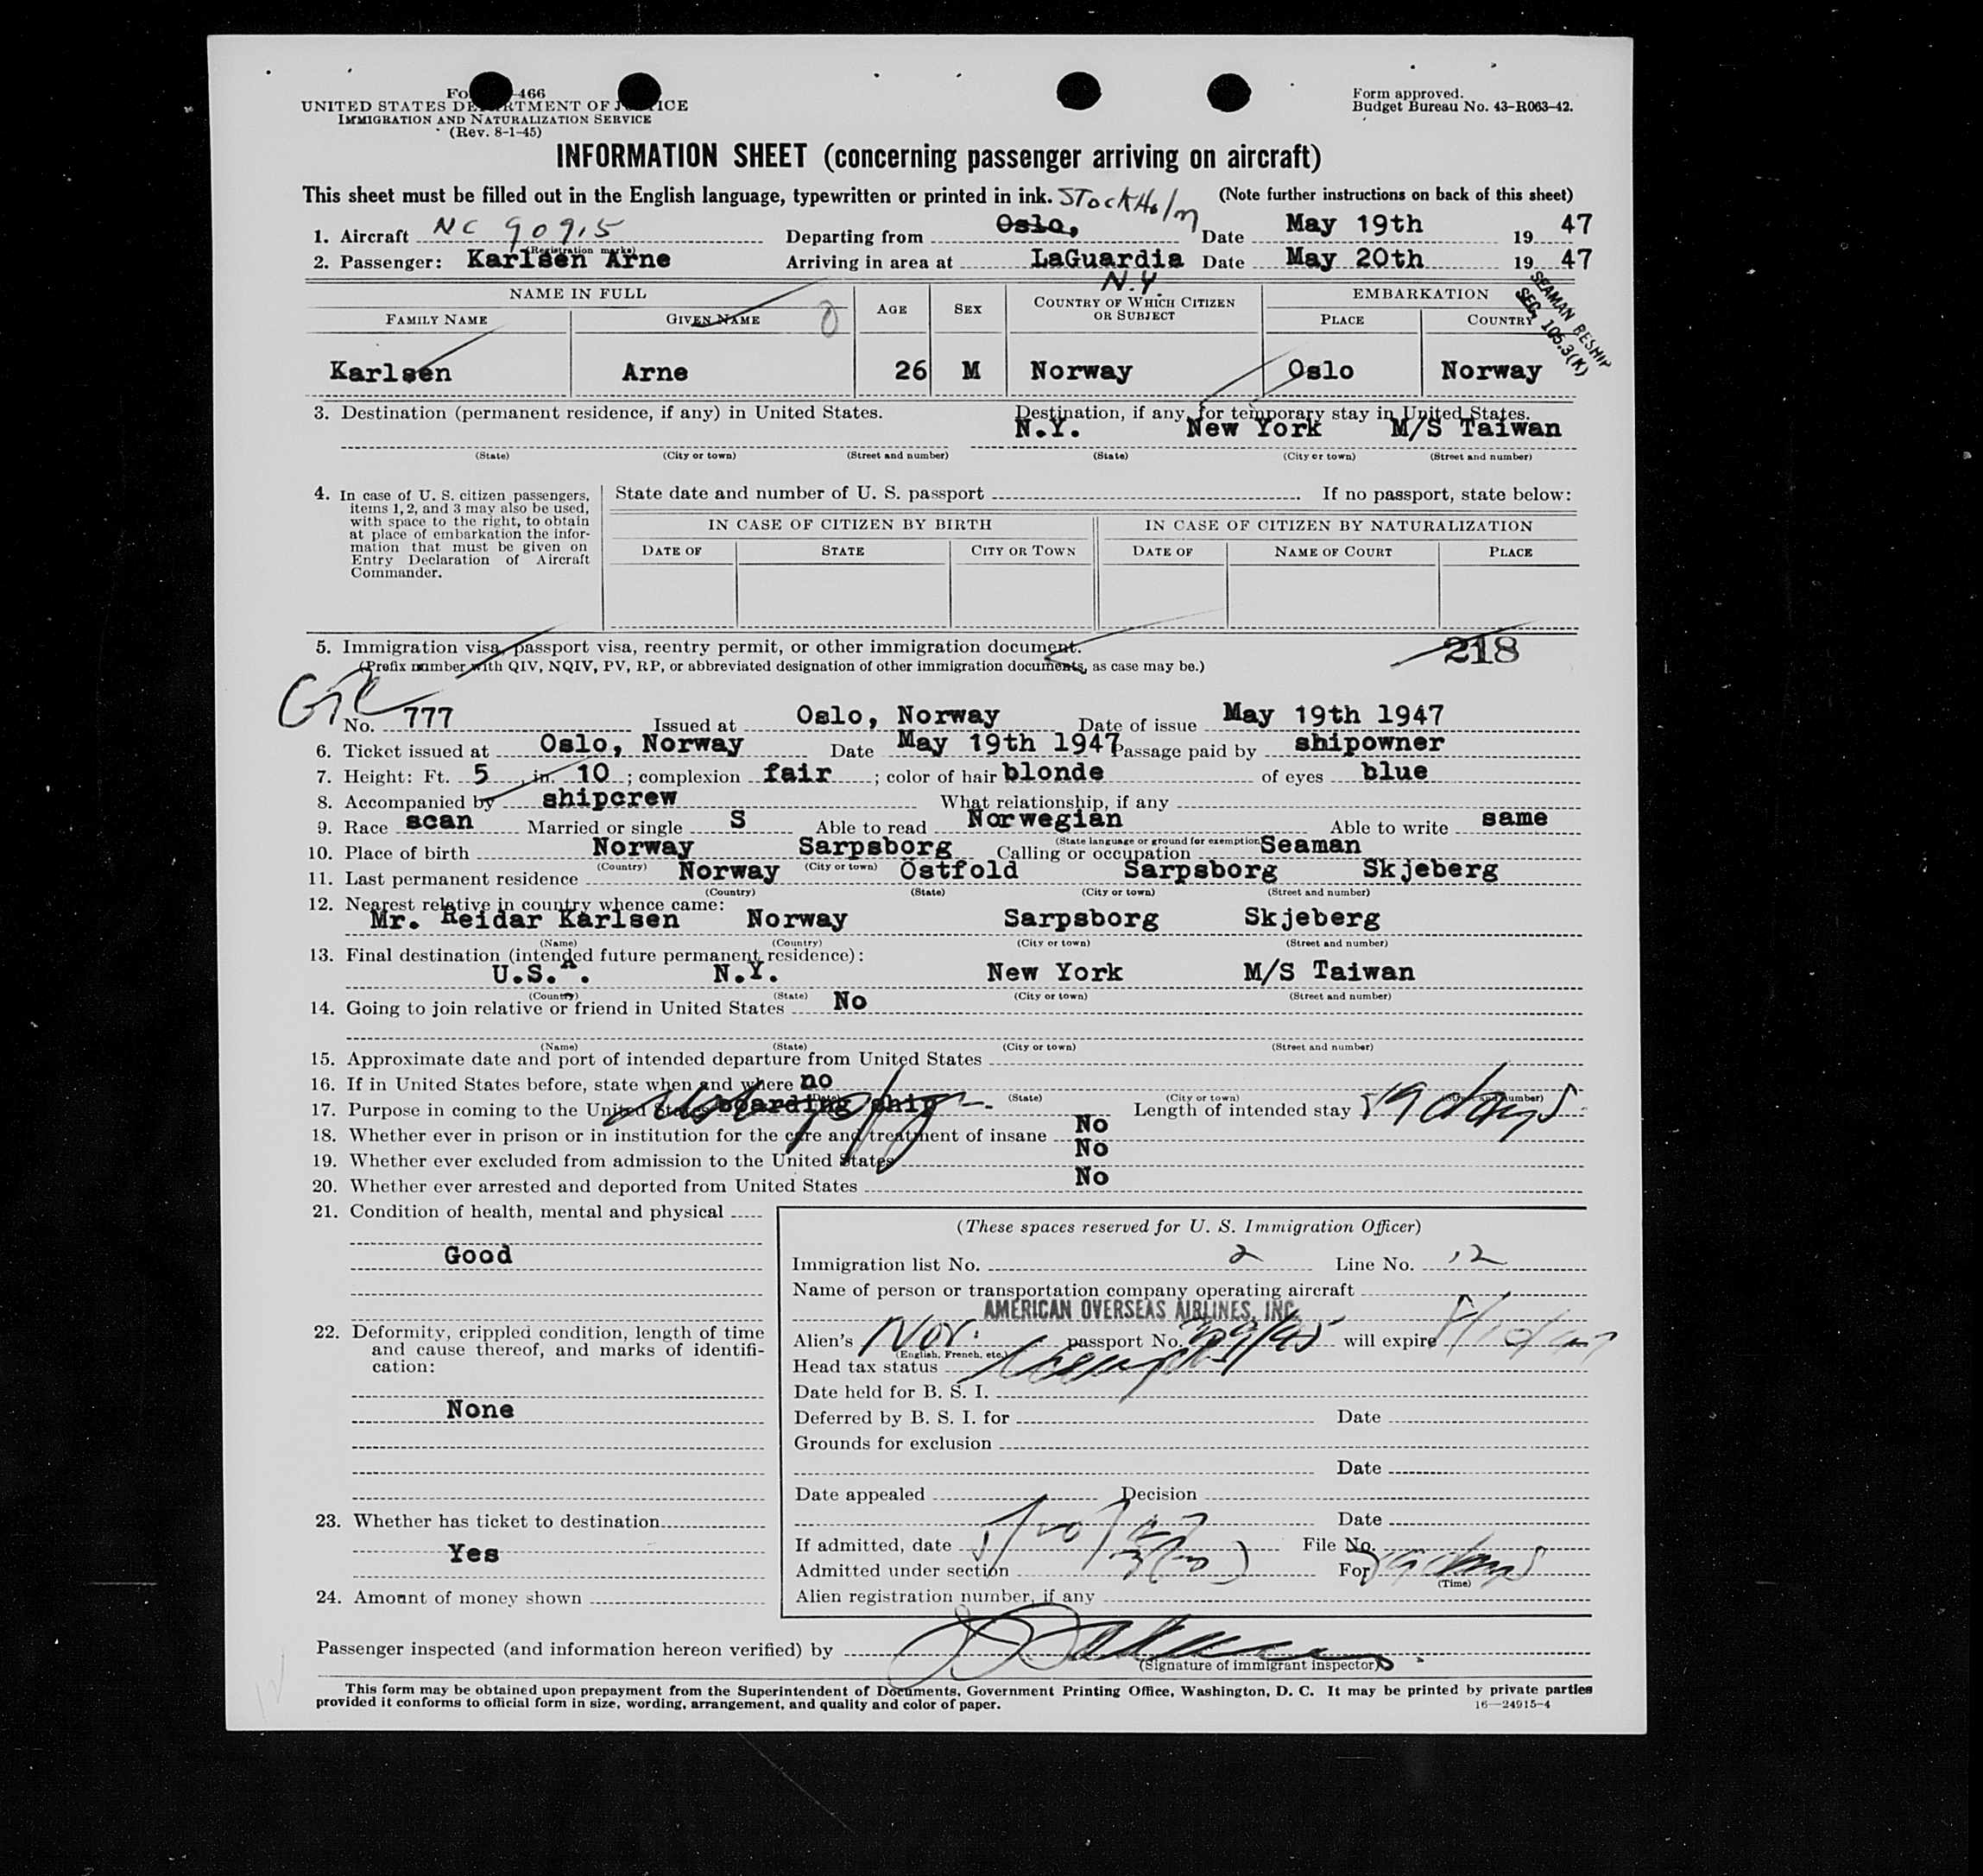 Fo 466
UNITED STATES DE RTMENT OF J ICE
IMMIGRATION AND NATURALIZATION SERVICE
(Rev. 8-1-45)
Form approved.
Budget Bureau No. 43-R063-42.
INFORMATION SHEET (concerning passenger arriving on aircraft)
This sheet must be filled out in the English language, typewritten or printed in ink. StockHolm (Note further instructions on back of this sheet)
1. Aircraft NC 90915 Departing from Oslo, Date May 19th 19 47
(Registration marks)
2. Passenger: Karlsen Arne Arriving in area at LaGuardia Date May 20th 19 47
N.Y.
SEAMAN RESHIP
SEC. 105.3(K)
NAME IN FULL AGE SEX COUNTRY OF WHICH CITIZEN OR SUBJECT EMBARKATION
FAMILY NAME GIVEN NAME PLACE COUNTRY
Karlsen Arne 26 M Norway Oslo Norway
3. Destination (permanent residence, if any) in United States. Destination, if any, for temporary stay in United States.
N.Y. New York M/S Taiwan
(State) (City or town) (Street and number) (State) (City or town) (Street and number)
4. In case of U. S. citizen passengers,
items 1, 2, and 3 may also be used,
with space to the right, to obtain
at place of embarkation the infor-
mation that must be given on
Entry Declaration of Aircraft
Commander.
State date and number of U. S. passport If no passport, state below:
IN CASE OF CITIZEN BY BIRTH IN CASE OF CITIZEN BY NATURALIZATION
DATE OF STATE CITY OR TOWN DATE OF NAME OF COURT PLACE
5. Immigration visa, passport visa, reentry permit, or other immigration document. 218
(Prefix number with QIV, NQIV, PV, RP, or abbreviated designation of other immigration documents, as case may be.)
No. 777 Issued at Oslo, Norway Date of issue May 19th 1947
6. Ticket issued at Oslo, Norway Date May 19th 1947 Passage paid by shipowner
7. Height: Ft. 5 in. 10 ; complexion fair ; color of hair blonde of eyes blue
8. Accompanied by shipcrew What relationship, if any
9. Race scan Married or single S Able to read Norwegian Able to write same
(State language or ground for exemption)
10. Place of birth Norway Sarpsborg Calling or occupation Seaman
(Country) (City or town)
11. Last permanent residence Norway Östfold Sarpsborg Skjeberg
(Country) (State) (City or town) (Street and number)
12. Nearest relative in country whence came:
Mr. Reidar Karlsen Norway Sarpsborg Skjeberg
(Name) (Country) (City or town) (Street and number)
13. Final destination (intended future permanent residence):
U.S.A. N.Y. New York M/S Taiwan
(Country) (State) (City or town) (Street and number)
14. Going to join relative or friend in United States No
(Name) (State) (City or town) (Street and number)
15. Approximate date and port of intended departure from United States
16. If in United States before, state when and where no
(Date) (State) (City or town) (Street and number)
17. Purpose in coming to the United States boarding ship Length of intended stay 29 days
18. Whether ever in prison or in institution for the care and treatment of insane No
19. Whether ever excluded from admission to the United States No
20. Whether ever arrested and deported from United States No
21. Condition of health, mental and physical
Good
22. Deformity, crippled condition, length of time
and cause thereof, and marks of identifi-
cation:
None
23. Whether has ticket to destination
Yes
24. Amount of money shown
(These spaces reserved for U. S. Immigration Officer)
Immigration list No. 2 Line No. 12
Name of person or transportation company operating aircraft
AMERICAN OVERSEAS AIRLINES, INC.
Alien's Nor. passport No. will expire
(English, French, etc.)
Head tax status
Date held for B. S. I.
Deferred by B. S. I. for Date
Grounds for exclusion
Date
Date appealed Decision
Date
If admitted, date 5/20/47 File No.
Admitted under section For 29 days
(Time)
Alien registration number, if any
Passenger inspected (and information hereon verified) by
(Signature of immigrant inspector)
This form may be obtained upon prepayment from the Superintendent of Documents, Government Printing Office, Washington, D. C. It may be printed by private parties
provided it conforms to official form in size, wording, arrangement, and quality and color of paper. 16—24915-4